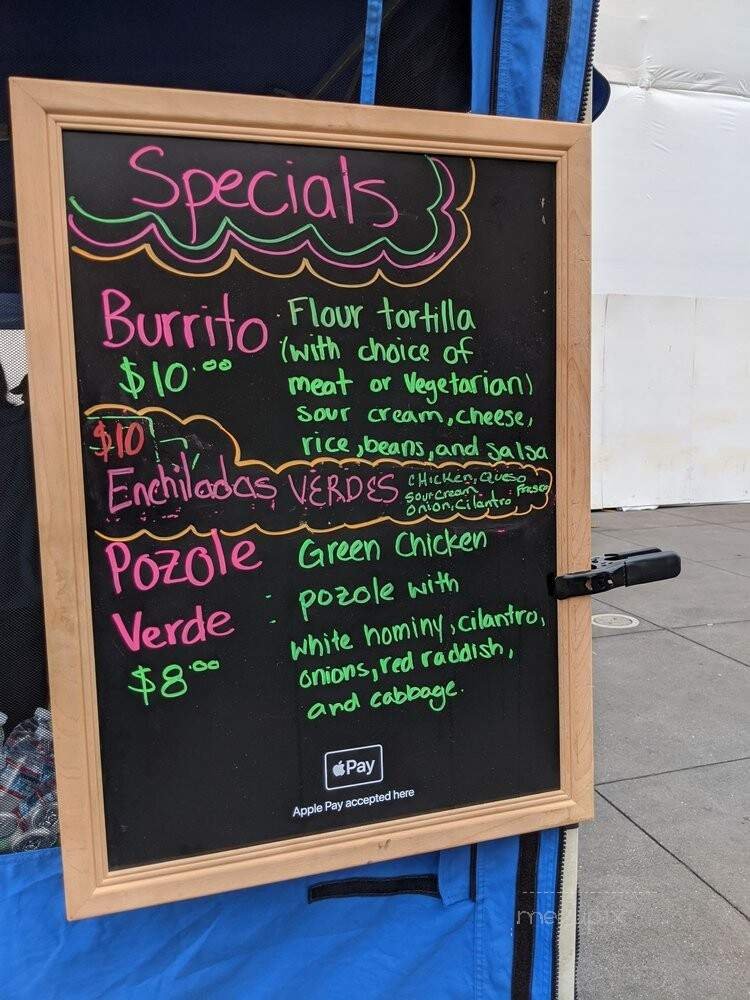 Specials
Burrito
$10.00
Flour tortilla
(with choice of
meat or vegetarian)
sour cream, cheese,
rice, beans, and salsa
$10
Enchiladas VERDES
CHicken, Queso
Sour cream Fresco
onion, cilantro
Pozole
Verde
$8.00
: Green Chicken
pozole with
white hominy, cilantro,
onions, red raddish,
and cabbage.
Pay
Apple Pay accepted here